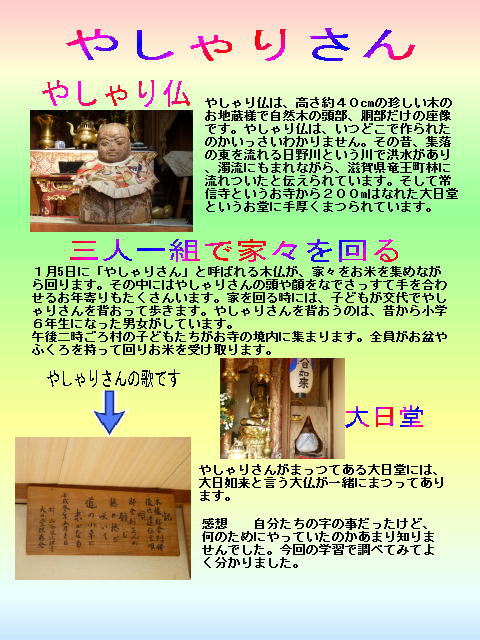 やしゃりさん
やしゃり仏
やしゃり仏は、高さ約４０㎝の珍しい木の
お地蔵様で自然木の頭部、胴部だけの座像
です。やしゃり仏は、いつどこで作られた
のかいっさいわかりません。その昔、集落
の東を流れる日野川という川で洪水があり
、濁流にもまれながら、滋賀県竜王町林に
流れついたと伝えられています。そして常
信寺というお寺から２００ｍはなれた大日堂
というお堂に手厚くまつられています。
三人一組で家々を回る
１月5日に「やしゃりさん」と呼ばれる木仏が、家々をお米を集めなが
ら回ります。その中にはやしゃりさんの頭や顔をなでさっすて手を合わ
せるお年寄りもたくさんいます。家を回る時には、子どもが交代でやし
ゃりさんを背おって歩きます。やしゃりさんを背おうのは、昔から小学
６年生になった男女がしています。
午後二時ごろ村の子どもたちがお寺の境内に集まります。全員がお盆や
ふくろを持って回りお米を受け取ります。
やしゃりさんの歌です
大日堂
やしゃりさんがまっつてある大日堂には、
大日如来と言う大仏が一緒にまつってあり
ます。
感想　　自分たちの字の事だったけど、
何のためにやっていたのかあまり知りま
せんでした。今回の学習で調べてみてよ
く分かりました。